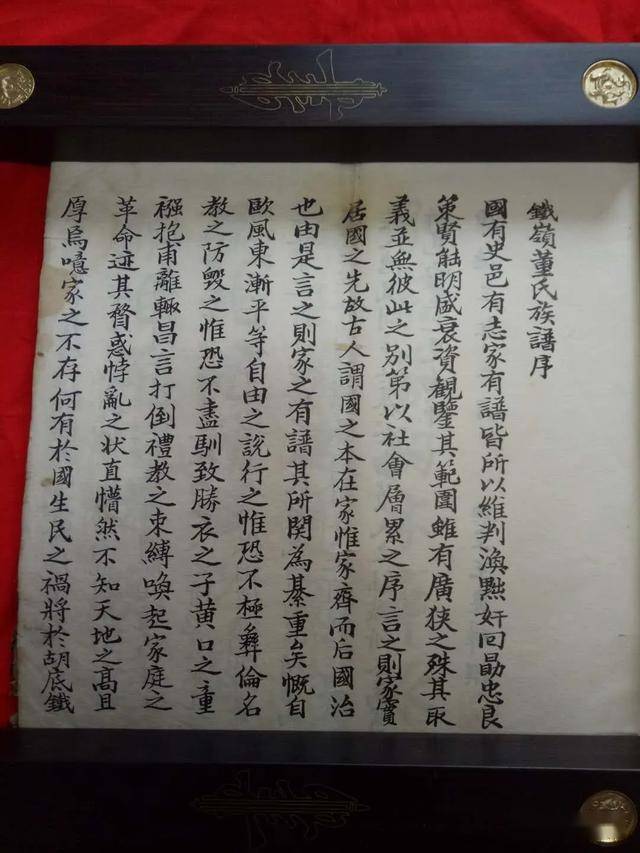 鐵嶺董氏族譜序
國有史邑有志家有譜皆所以維判渙黜奸回勗忠良
策賢能明盛衰資觀鑒其範圍雖有廣狹之殊其取
義並無彼此之別第以社會層累之序言之則家實
居國之先故古人謂國之本在家惟家齊而后國治
也由是言之則家之有譜其所関為綦重矣慨自
歐風東漸平等自由之說行之惟恐不極彝倫名
教之防毀之惟恐不盡馴致勝衣之子黄口之童
襁抱甫離輙昌言打倒禮教之束縛喚起家庭之
革命迹其瞀惑悖亂之状直懵然不知天地之高且
厚烏噫家之不存何有於國生民之禍將於胡底鐵